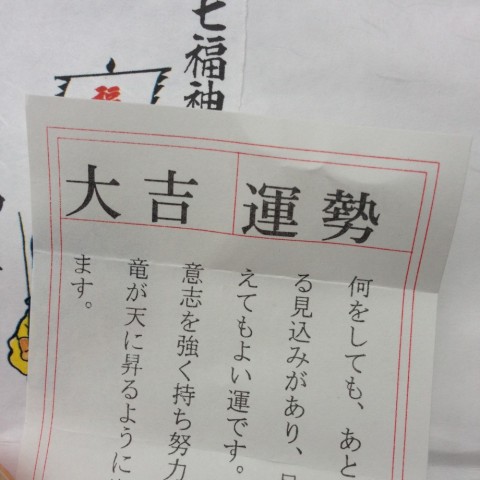 七福神
福
運勢
大吉
何をしても、あと
る見込みがあり、
えてもよい運です。
意志を強く持ち努力
竜が天に昇るように
ます。